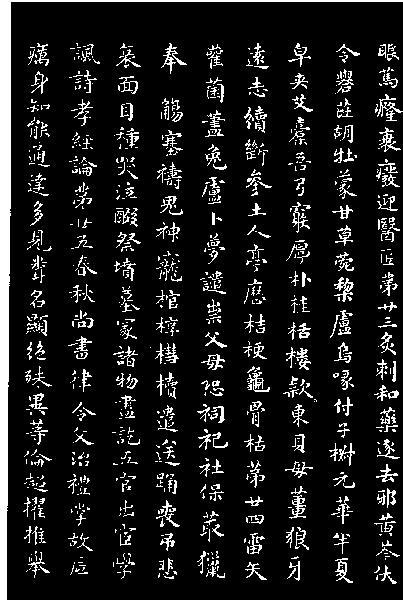 眠篤癃衰廢迎醫匠第廿三灸刺和藥逐去邪黃芩伏
令礜茈胡牡蒙甘草菀棃盧烏喙付子椒元華半夏
皁夾艾橐吾弓窮厚朴桂栝樓款東貝母薑狼牙
遠志續斷參土人亭歷桔梗龜骨枯第廿四雷矢
雚菌藎兔盧卜夢譴祟父母恐祠祀社保菆獵
奉觴塞禱鬼神寵棺椁槥櫝遣送踊喪弔悲
哀面目種哭泣醊祭墳墓冢諸物盡訖五官出宦學
諷詩孝經論第廿五春秋尚書律令文治禮掌故底
厲身知能通達多見聞名顯絕殊異等倫超擢推舉